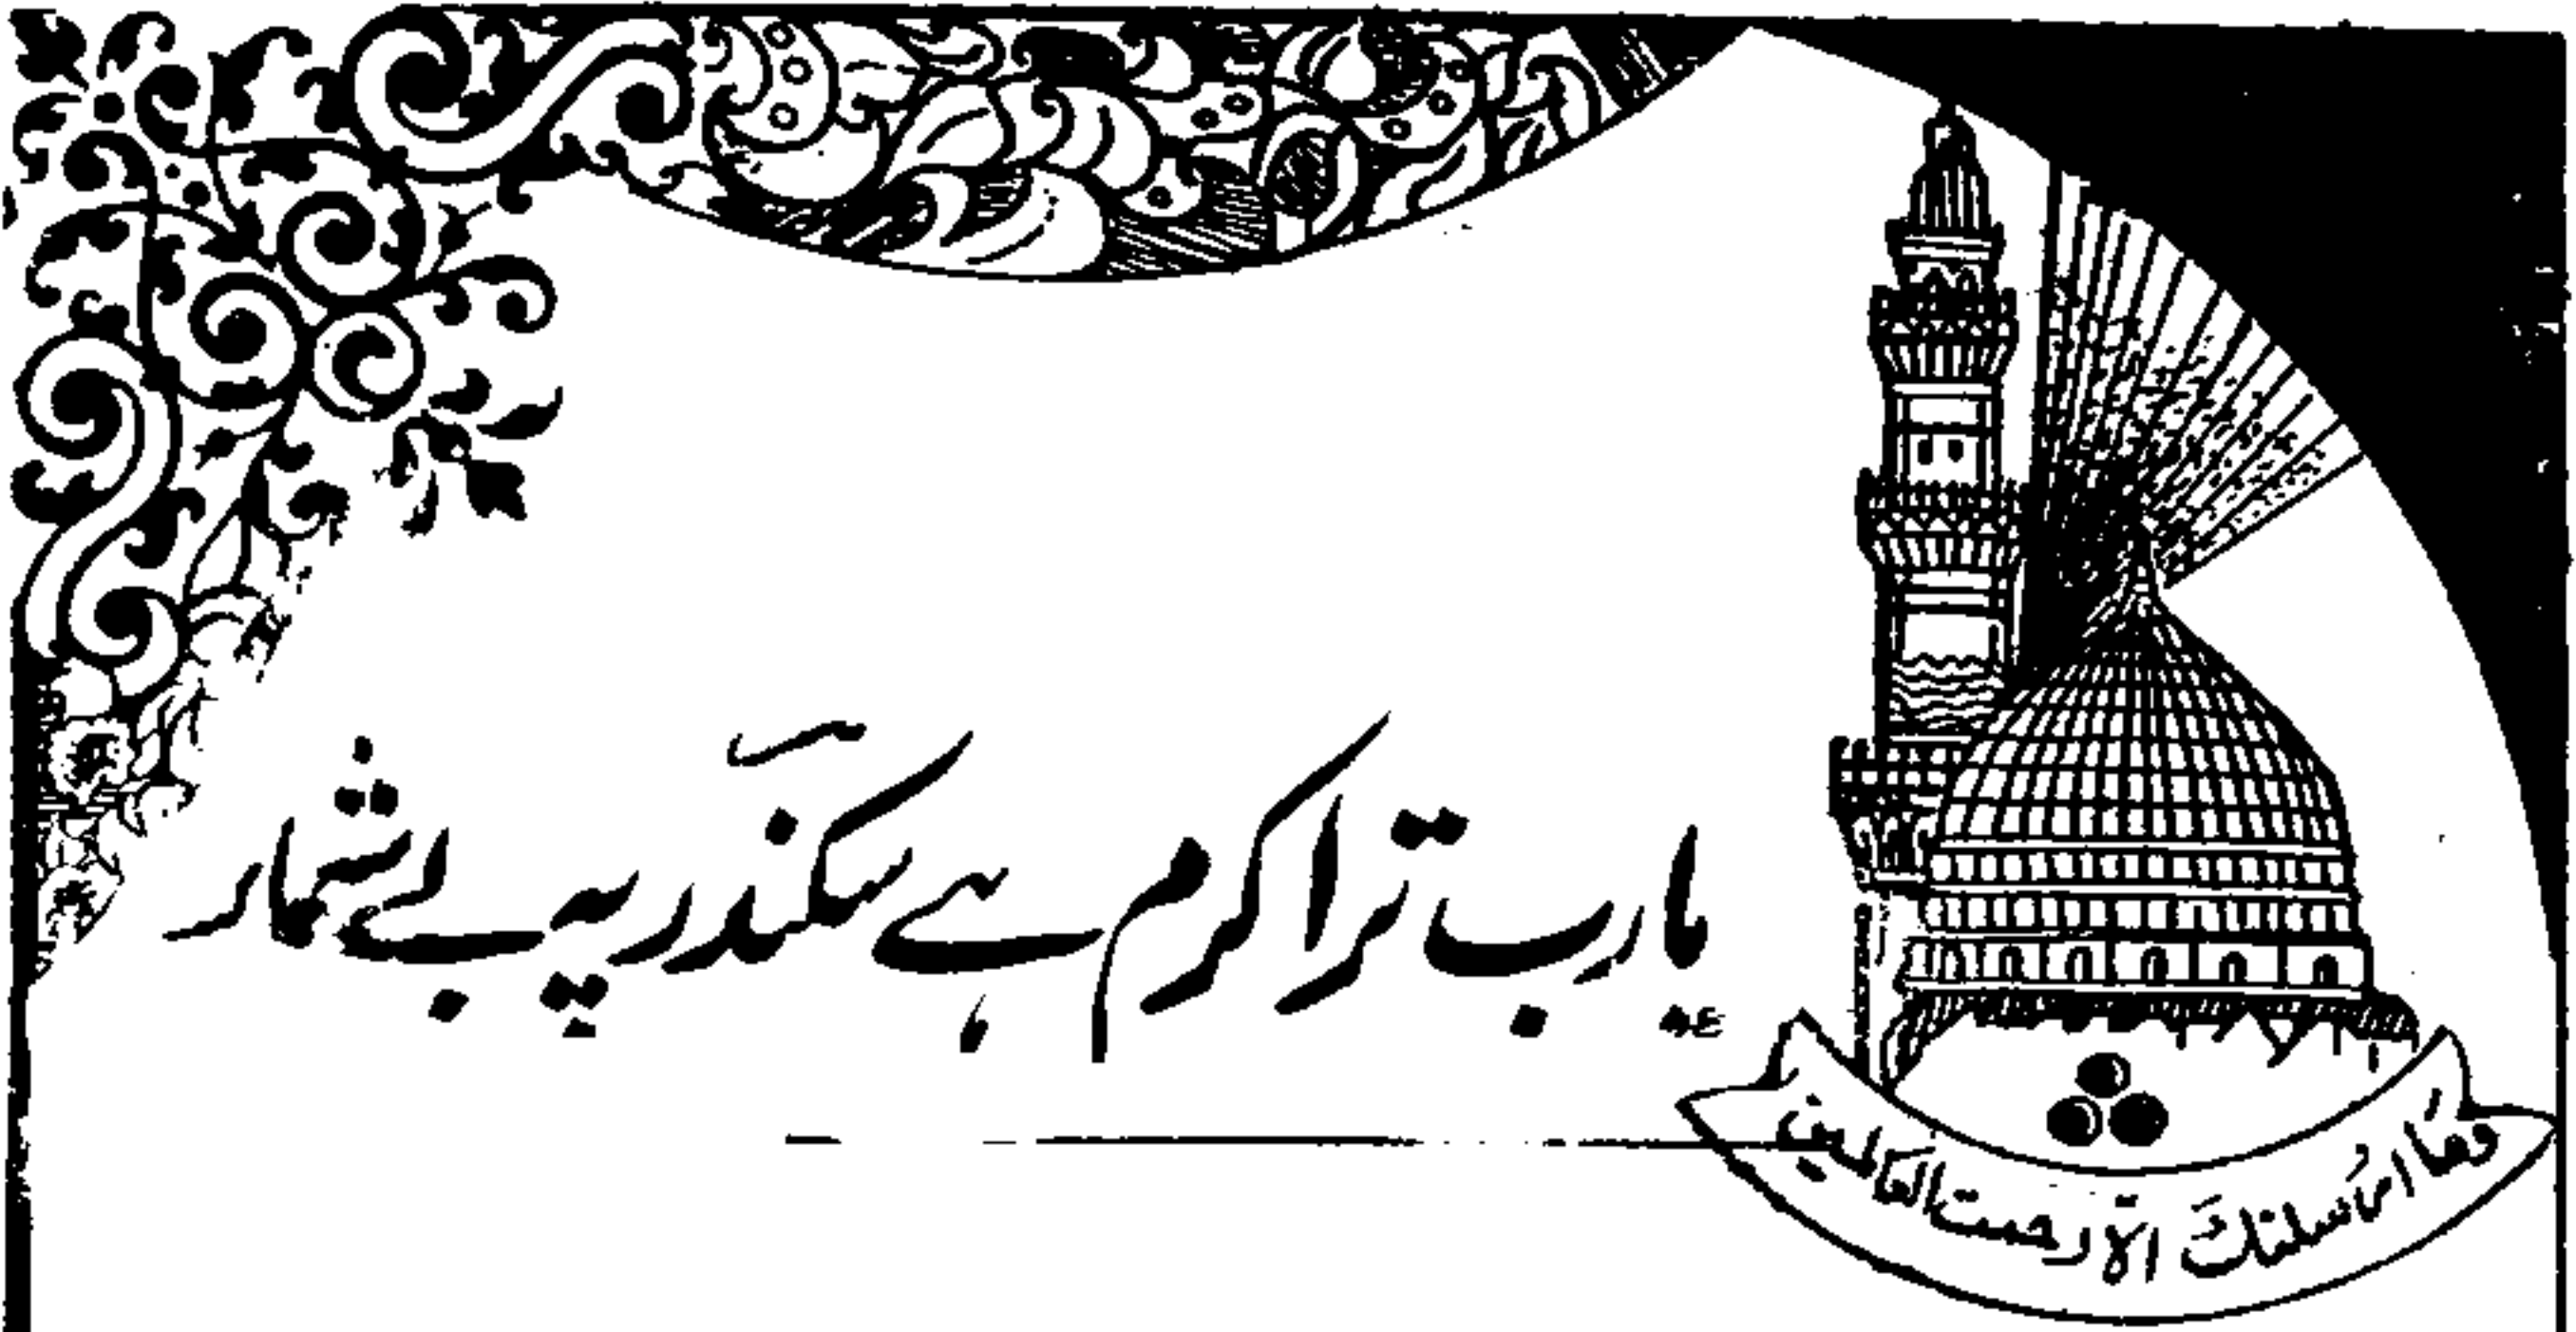 یارب ترا کرم ہے سکندر پہ بے شمار
وما ارسلنك الا رحمت العالمين